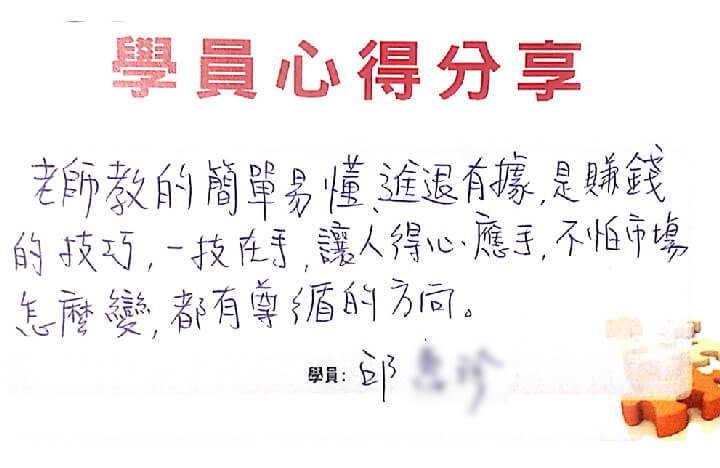 學員心得分享
老師教的簡單易懂、進退有據,是賺錢
的技巧,一技在手,讓人得心應手,不怕市場
怎麼變,都有尊循的方向。
學員:邱